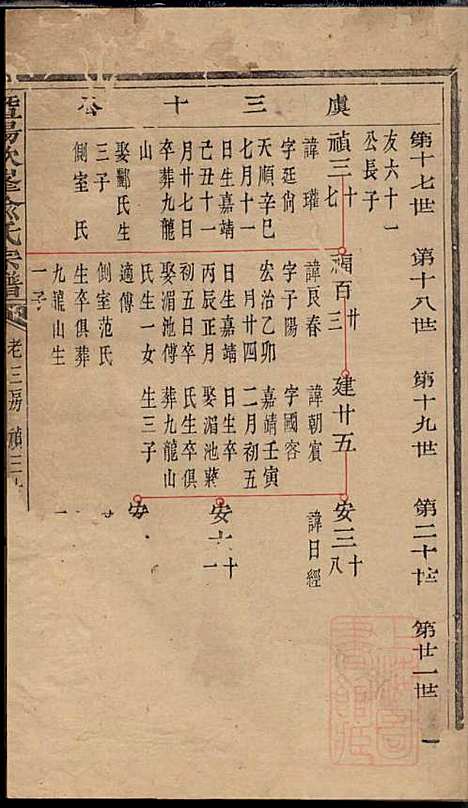 第十七世　第十八世　第十九世　第二十世　第廿一世　一
友六十一
公長子
虞三十
禎三十七
諱瓘
字廷尙
天順辛巳
七月十一
日生嘉靖
己丑十一
月廿七日
卒葬九龍
山
娶酈氏生
三子
側室　氏
福百廿三
諱辰春
字子陽
宏治乙卯
　月廿四
日生嘉靖
丙辰正月
初五日卒
娶湄池傅
氏生一女
適傅
側室范氏
生卒俱葬
九龍山生
一子
建廿五
諱朝賓
字國容
嘉靖壬寅
二月初五
日生卒
娶湄池蔣
氏生卒俱
葬九龍山
生三子
安三十八
諱日經
安六十一
安
氏宗譜
老三房
禎三